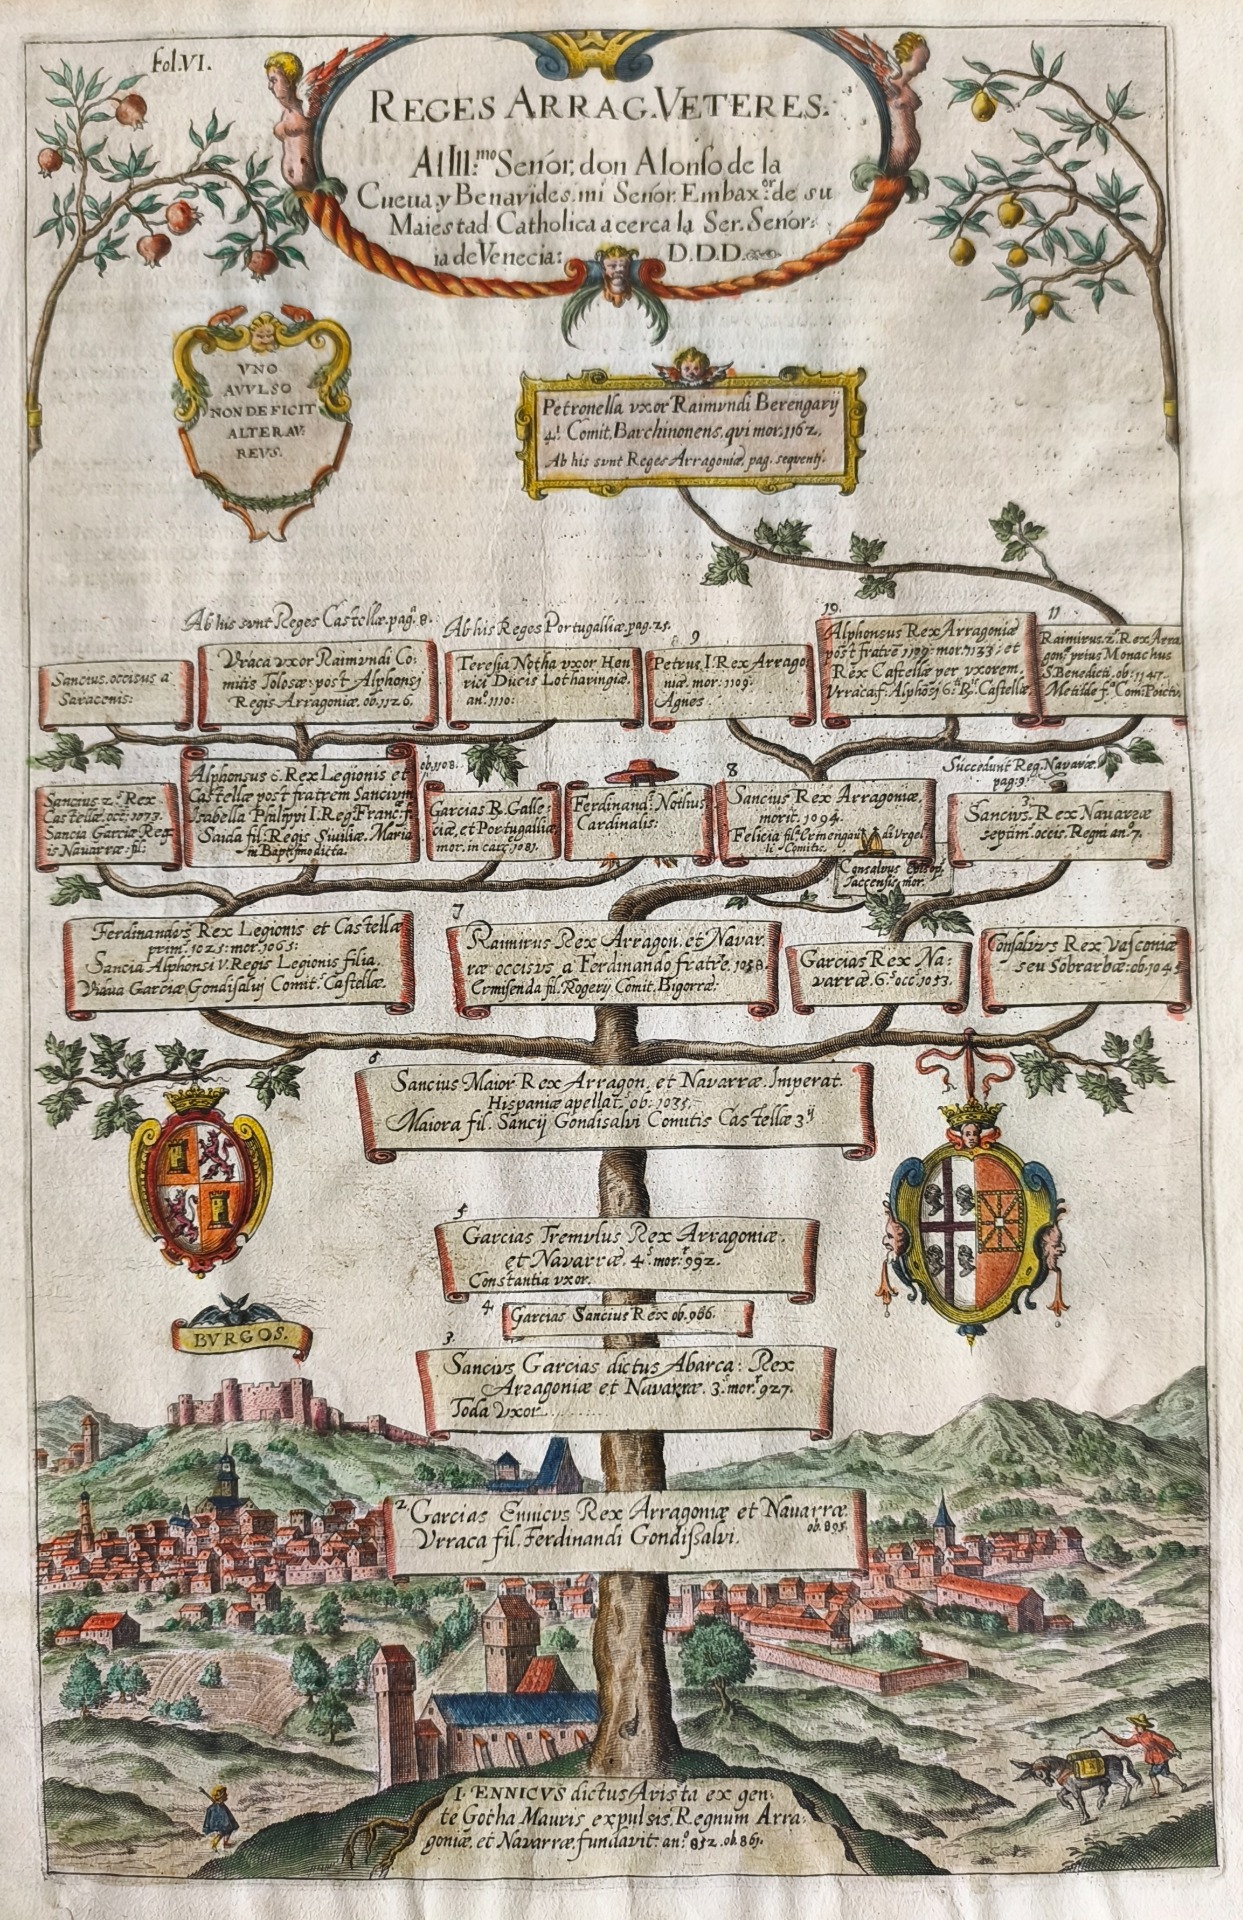 fol.VI.
REGES ARRAG.VETERES.
Al Ill:mo Señor, don Alonso de la
Cueua, y Benavides. mi Señor. Embax:or de su
Maiestad Catholica acerca la Ser. Señor:
ia de Venecia: D.D.D.
VNO
AVVLSO
NON DEFICIT
ALTER AV:
REVS.
Petronella vxor Raimvndi Berengarij
4.i Comit. Barchinonens. qvi mor. 1162.
Ab his svnt Reges Arragoniæ, pag. seqventj.
Ab his svnt Reges Castellæ. pag.a 8.
Ab his Reges Portugalliæ. pag. 25.
Sancius. occisus a
Saracenis:
Vraca vxor Raimvndi Co:
mitis Tolosæ: post Alphonsj
Regis Arragoniæ. ob. 1126.
Teresia Notha vxor Hen
rici Ducis Lotharingiæ.
an.o 1110:
9
Petrus. I. Rex Arrago
niæ. mor: 1109.
Agnes
10.
Alphonsus Rex Arragoniæ
post fratrē 1109. mor. 1133; et
Rex Castellæ per vxorem
Vrracā f. Alphosj 6.ti R. Castellæ.
11
Raimirus. 2.s Rex Arra
gon. prius Monachus
S. Benedicti. ob: 1147.
Metilde f. Com Poictv.
Sancius 2.s Rex
Castellæ. occ. 1073.
Sancia Garciæ Reg
is Navarræ. fil:
Alphonsus 6. Rex Legionis et
Castellæ post fratrem Sancium
Isabella Philippi I. Reg. Franc. f.
Saida fil: Regis Siuiliæ. Maria
in Baptismo dicta.
ob. 1108.
Garcias R. Galle:
ciæ, et Portugalliæ
mor. in carc. 1081.
Ferdinand: Nothus
Cardinalis:
8
Sancius Rex Arragoniæ.
morit. 1094.
Felicia fil. Ermengau di Vrgel
li Comitis.
Consalvus Episop.
Jaccensis. mor.
Succedunt Reg. Navaræ.
pag: 9.
Sancivs. Rex Nauaræ
septim. occis. Regni an. 7.
Ferdinandvs Rex Legionis et Castellæ
prim. 1025: mor. 1065:
Sancia Alphonsi V. Regis Legionis filia.
Viaua Garciæ Gondisaluj Comit. Castellæ.
7
Raimirus Rex Arragon. et Navar
ræ occisvs a Ferdinando fratre. 1058.
Ermisenda fil. Rogerij Comit. Bigorræ:
Garcias Rex Na:
varræ. 6.s occ. 1053.
Consalvvs Rex Vasconiæ
seu Sobrarbæ: ob. 1045
6
Sancius Maior Rex Arragon. et Navarræ. Imperat.
Hispaniæ apellat.s ob: 1035.
Maiora fil. Sancij Gondisalvi Comitis Castellæ 3.ij
5
Garcias Tremvlus Rex Arragoniæ.
et Navarræ. 4.s mor.r 992.
Constantia vxor.
4.
Garcias Sancius Rex ob. 986.
3.
Sancivs Garcias dictus Abarca: Rex
Arragoniæ et Navarræ. 3.s mor.r 927.
Toda Vxor..........
BVRGOS.
2. Garcias Ennicvs Rex Arragoniæ et Navarræ.
ob. 895.
Vrraca fil. Ferdinandi Gondissalvi.
I. ENNICVS dictus Arista ex gen:
te Gotha Mauris expulsis. Regnum Arra:
goniæ. et Navarræ. fundavit: an.o 852. ob. 867.